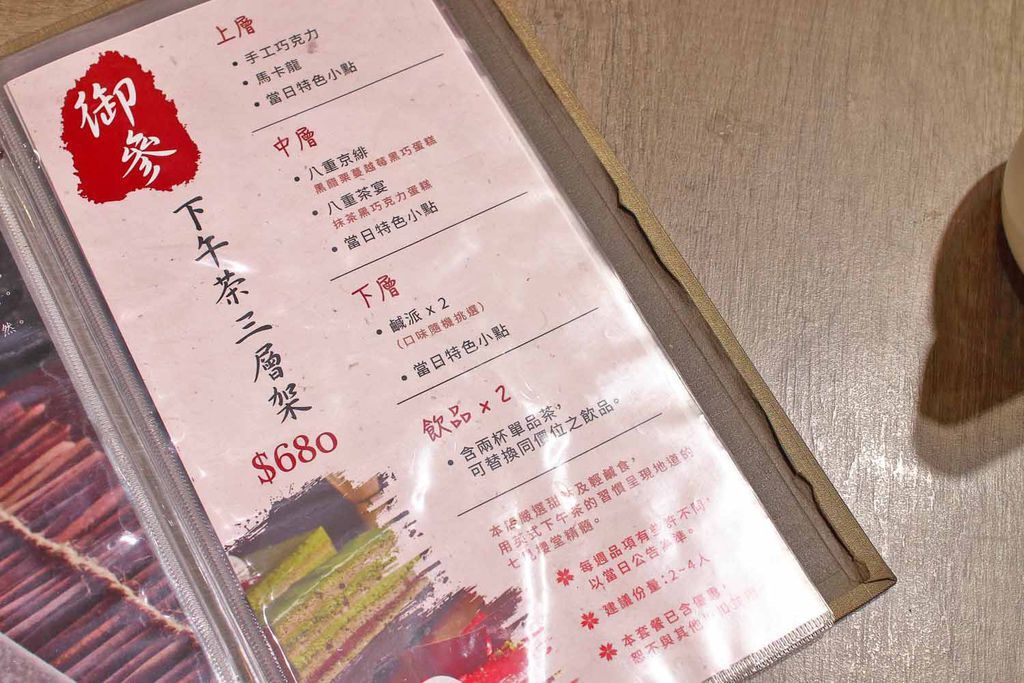 御參
下午茶三層架
$680
上層
• 手工巧克力
• 馬卡龍
• 當日特色小點
中層
• 八重京緋
黑醋栗蔓越莓黑巧蛋糕
• 八重茶宴
抹茶黑巧克力蛋糕
• 當日特色小點
下層
• 鹹派 x 2
(口味隨機挑選)
• 當日特色小點
飲品 x 2
• 含兩杯單品茶,
可替換同價位之飲品。
本店嚴選甜點及輕鹹食,
用英式下午茶的習慣呈現地道的
七見櫻堂精髓。
每週品項有些許不同,
以當日公告為準。
建議份量:2~4人
本套餐已含優惠,
恕不與其他
。
然。